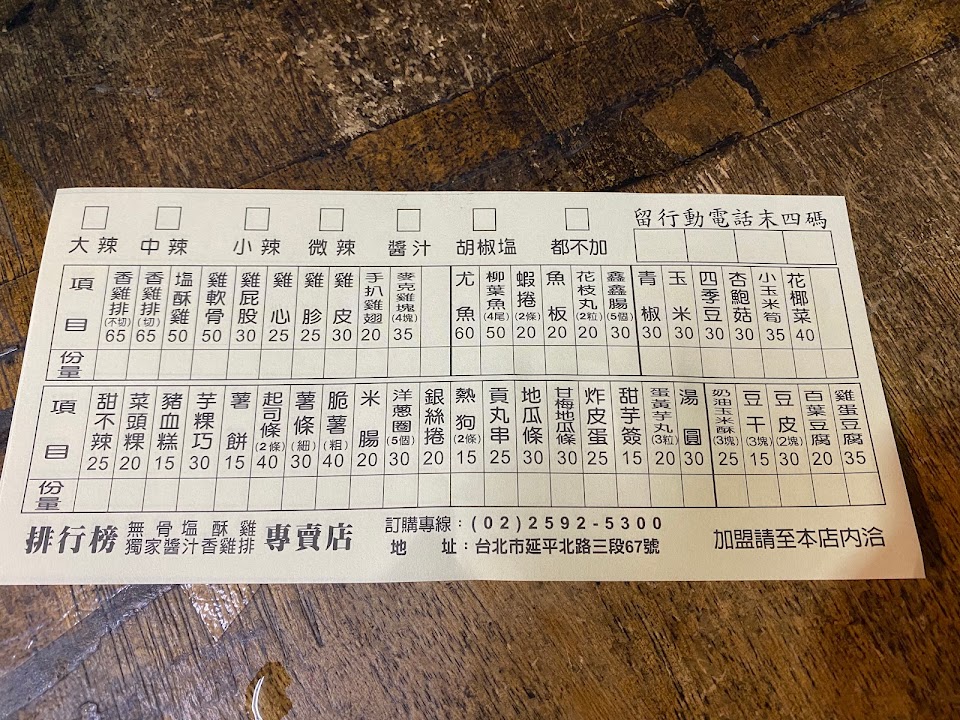 大辣 中辣 小辣 微辣 醬汁 胡椒塩 都不加 留行動電話末四碼
項目
香雞排(不切) 65
香雞排(切) 65
塩酥雞 50
雞軟骨 50
雞屁股 30
雞心 25
雞胗 25
雞皮 30
手扒雞翅 20
麥克雞塊(4塊) 35
尤魚 60
柳葉魚(4尾) 50
蝦捲(2條) 20
魚板 20
花枝丸(2粒) 20
鑫鑫腸(5個) 30
青椒 30
玉米 30
四季豆 30
杏鮑菇 30
小玉米筍 35
花椰菜 40
份量
項目
甜不辣 25
菜頭粿 20
豬血糕 15
芋粿巧 30
薯餅 15
起司條(2條) 40
薯條(細) 30
脆薯(粗) 40
米腸 20
洋蔥圈(5個) 30
銀絲捲 20
熱狗(2條) 15
貢丸串 25
地瓜條 30
甘梅地瓜條 30
炸皮蛋 25
甜芋簽 15
蛋黃芋丸(3粒) 20
湯圓 30
奶油玉米酥(3塊) 25
豆干(3塊) 15
豆皮(2塊) 30
百葉豆腐 20
雞蛋豆腐 35
份量
排行榜 無骨塩酥雞 獨家醬汁香雞排 專賣店
訂購專線：(02)2592-5300
地 址：台北市延平北路三段67號
加盟請至本店內洽